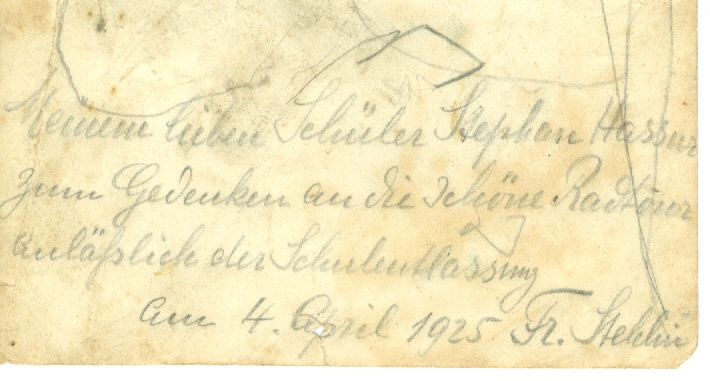 Meinem lieben Schüler Stephan
zum Gedenken an die schöne Radtour
anläßlich der Schulentlassung
am 4. April 1925 Fr. Stehlin